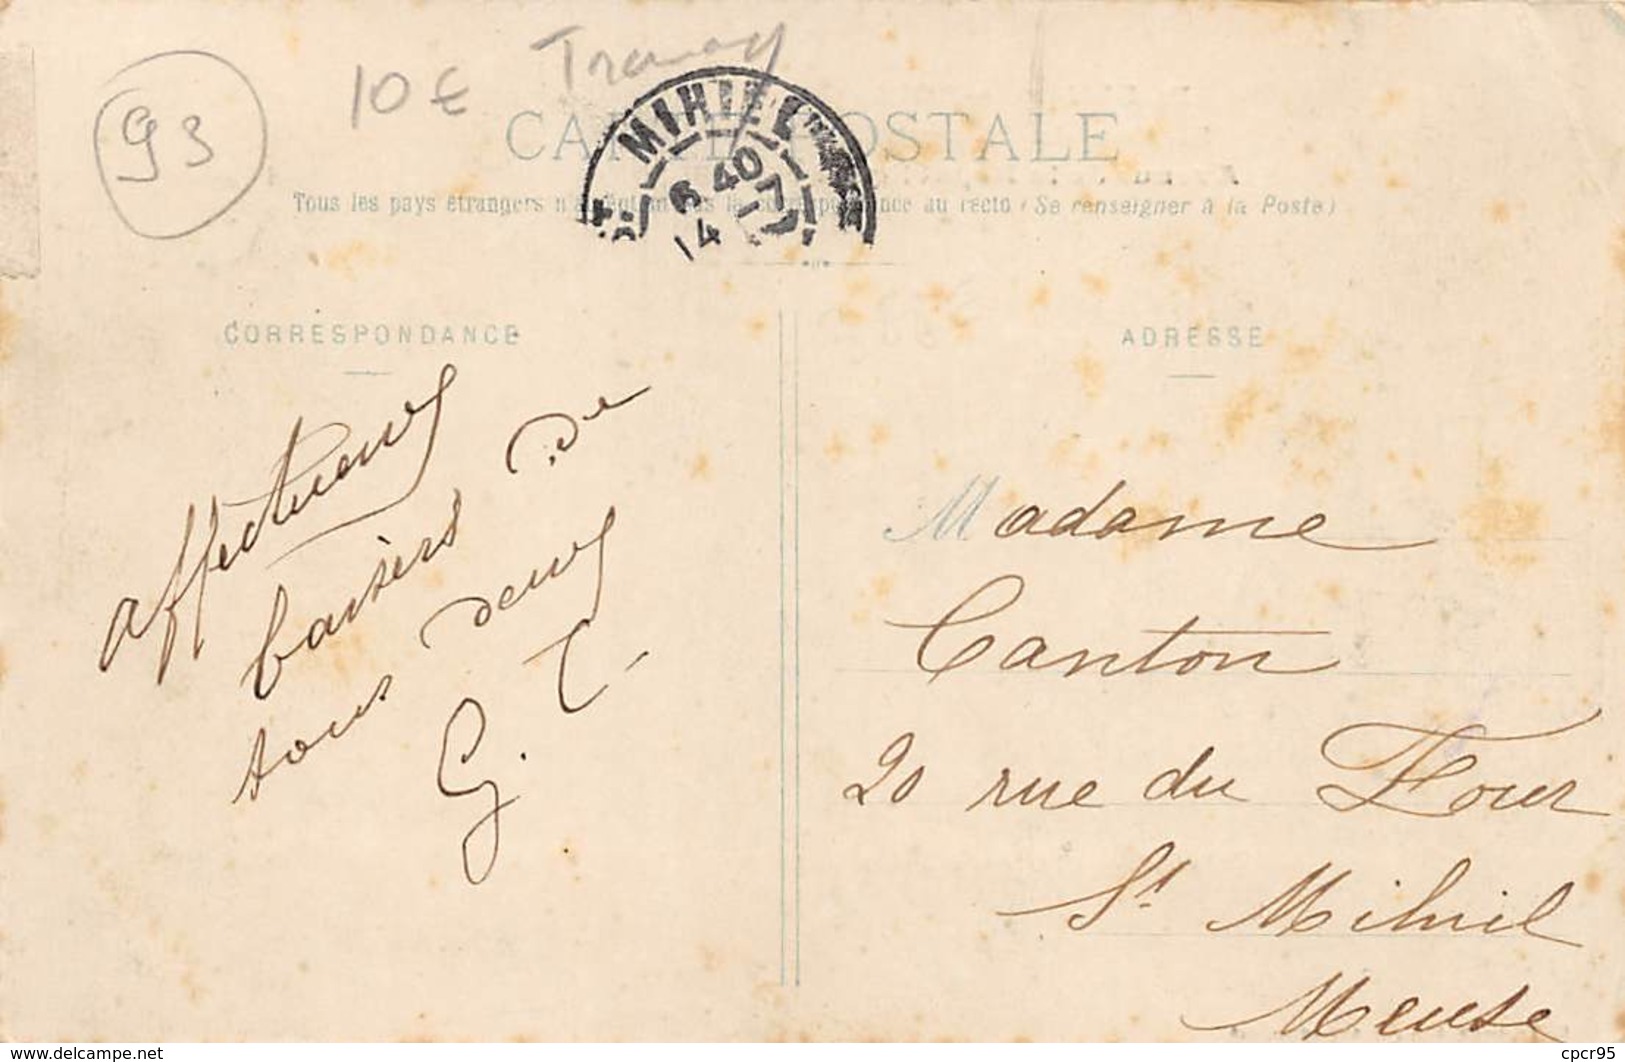 93
10€ Tramway
CARTE POSTALE
MIHIEL
8 40
14 7
Tous les pays étrangers n'acceptent pas la correspondance au recto (Se renseigner à la Poste)
CORRESPONDANCE
affectueux
baisers de
tous deux
G. C.
ADRESSE
Madame
Canton
20 rue du Four
St Mihiel
Meuse
cpcr95